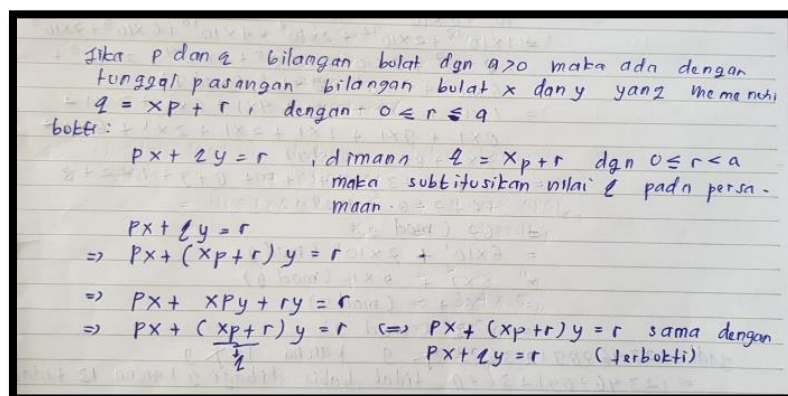 Jika p dan q bilangan bulat dgn a>0 maka ada dengan
tunggal pasangan bilangan bulat x dan y yang memenuhi
q = xp + r, dengan 0 ≤ r ≤ a
bukti:
px + qy = r , dimana q = xp + r dgn 0 ≤ r < a
maka subtitusikan nilai q pada persa-
maan.
px + qy = r
=> px + (xp + r) y = r
=> px + xpy + ry = r
=> px + (xp + r) y = r <=> px + (xp + r) y = r sama dengan
q px + qy = r (terbukti)